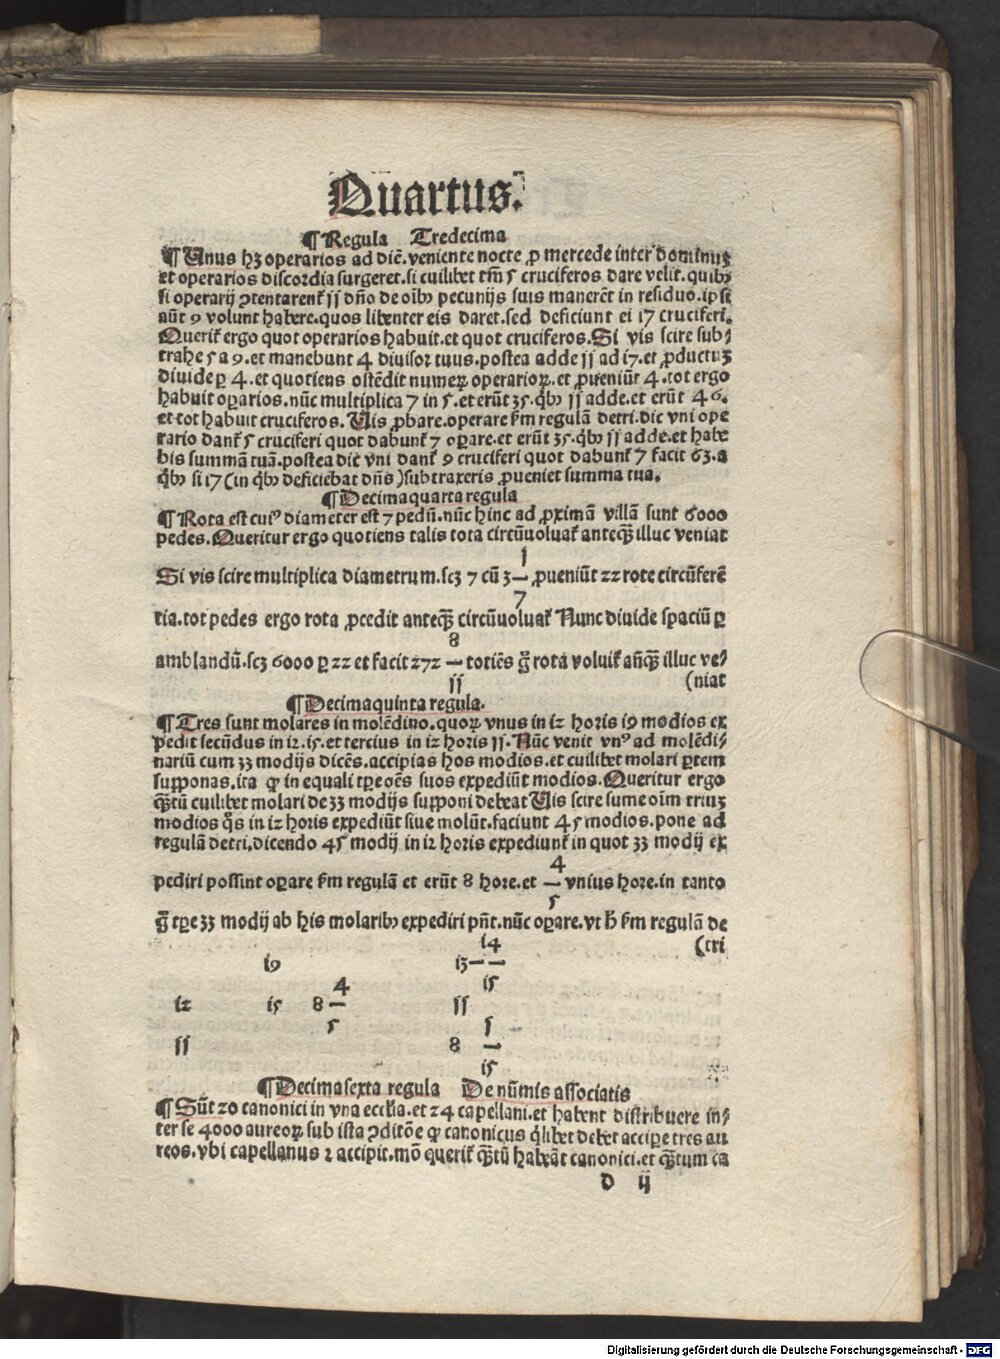 Quartus.
¶ Regula Tredecima
¶ Unus hꝫ operarios ad diē. veniente nocte ꝓ mercede inter dominuꝫ
et operarios discordia surgeret. si cuilibet tm̄ 5 cruciferos dare velit. quibꝫ
si operarij ꝯtentarent᷑ 11 dn̄o de oībꝫ pecunijs suis manerēt in residuo. ipsi
aūt 9 volunt habere. quos libenter eis daret. sed deficiunt ei 17 cruciferi.
Querit᷑ ergo quot operarios habuit. et quot cruciferos. Si vis scire sub⸗
trahe 5 a 9. et manebunt 4 diuisor tuus. postea adde 11 ad 17. et ꝓductuꝫ
diuide ꝑ 4. et quotiens ostēdit numeꝝ operarioꝝ. et ꝓueniūt 4. tot ergo
habuit oꝑarios. nūc multiplica 7 in 5. et erūt 35. qͥbꝫ 11 adde. et erūt 46.
et tot habuit cruciferos. Uis ꝓbare. operare ẜm regulā detri. dic vni ope
rario dant᷑ 5 cruciferi quot dabunt᷑ 7 oꝑare. et erūt 35. qͥbꝫ 11 adde. et habe
bis summā tuā. postea dic vni dant᷑ 9 cruciferi quot dabunt᷑ 7 facit 63. a
qͥbꝫ si 17 (in qͥbꝫ deficiebat dn̄s) subtraxeris ꝓueniet summa tua.
¶ Decimaquarta regula
¶ Rota est cuiꝰ diameter est 7 pedū. nūc hinc ad ꝓximā villā sunt 6000
pedes. Queritur ergo quotiens talis rota circūuoluat᷑ anteqꝫ̄ illuc veniat
1
Si vis scire multiplica diametrum. scꝫ 7 cū 3— ꝓueniūt 22 rote circūferē
7
tia. tot pedes ergo rota ꝓcedit anteqꝫ̄ circūuoluat᷑ Nunc diuide spaciū ꝑ
8
amblandū. scꝫ 6000 ꝑ 22 et facit 272 — totiēs gͦ rota voluit᷑ an̄qꝫ̄ illuc ve⸗
11 (niat
¶ Decimaquinta regula.
¶ Tres sunt molares in molēdino. quoꝝ vnus in 12 horis 19 modios ex
pedit secūdus in 12. 15. et tercius in 12 horis 11. Nūc venit vnꝰ ad molēdi⸗
nariū cum 33 modijs dicēs. accipias hos modios. et cuilibet molari ꝑtem
supponas. ita ꝙ in equali tꝑe oēs suos expediūt modios. Queritur ergo
qꝫ̄tū cuilibet molari de 33 modijs supponi debeat Uis scire sume oīm triuꝫ
modios qͦs in 12 horis expediūt siue molūt. faciunt 45 modios. pone ad
regulā detri. dicendo 45 modij in 12 horis expediunt᷑ in quot 33 modij ex
4
pediri possint oꝑare ẜm regulā et erūt 8 hore. et — vnius hore. in tanto
5
gͦ tꝑe 33 modij ab his molaribꝫ expediri pn̄t. nūc oꝑare. vt h̄ ẜm regulā de
14 (tri
19 13— —
4 15
12 15 8 — 11
5 1
11 8 —
15
¶ Decimasexta regula De nūmis associatis
¶ Sūt 20 canonici in vna ecclīa. et 24 capellani. et habent distribuere in⸗
ter se 4000 aureoꝝ sub ista ꝯditōe ꝙ canonicus qͥlibet debet accipe tres au
reos. vbi capellanus 2 accipit. mō querit᷑ qꝫ̄tū habeāt canonici. et qꝫ̄tum ca
d ij
Digitalisierung gefördert durch die Deutsche Forschungsgemeinschaft - DFG